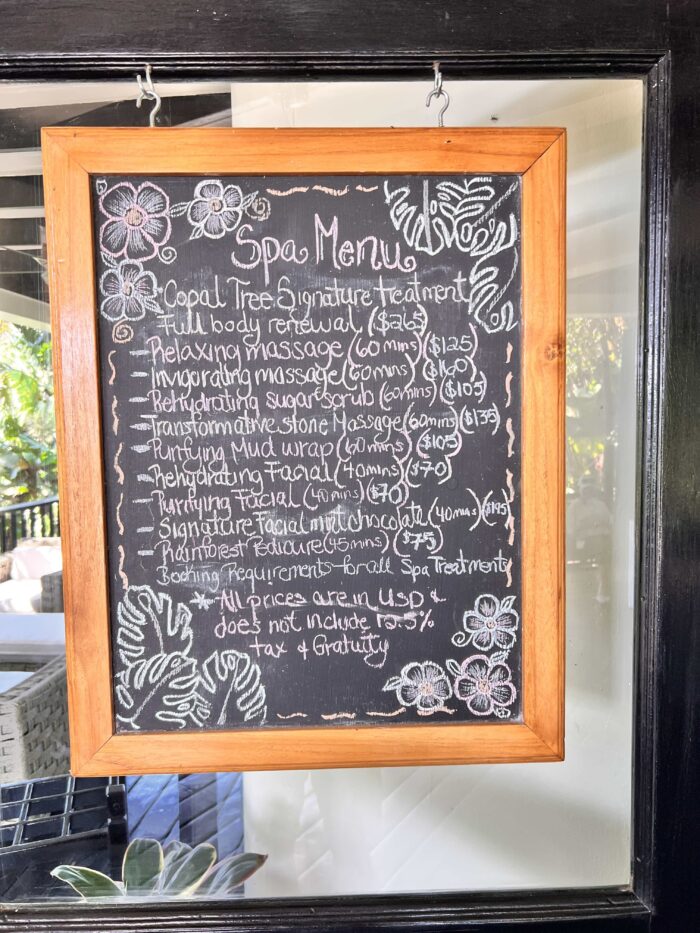 Spa Menu
Copal Tree Signature treatment
Full body renewal ($265)
- Relaxing massage (60mins) ($125)
- Invigorating massage (60mins) ($160)
- Rehydrating sugar scrub (60mins) ($105)
- Transformative stone Massage (60mins) ($135)
- Purifying Mud wrap (60mins) ($105)
- Rehydrating Facial (40mins) ($70)
- Purifying Facial (40mins) ($70)
- Signature Facial mint chocolate (40mins)
- Rainforest Pedicure (45mins) ($75)
Booking Requirements for all Spa Treatments
* All prices are in USD &
does not include 12.5%
tax & Gratuity